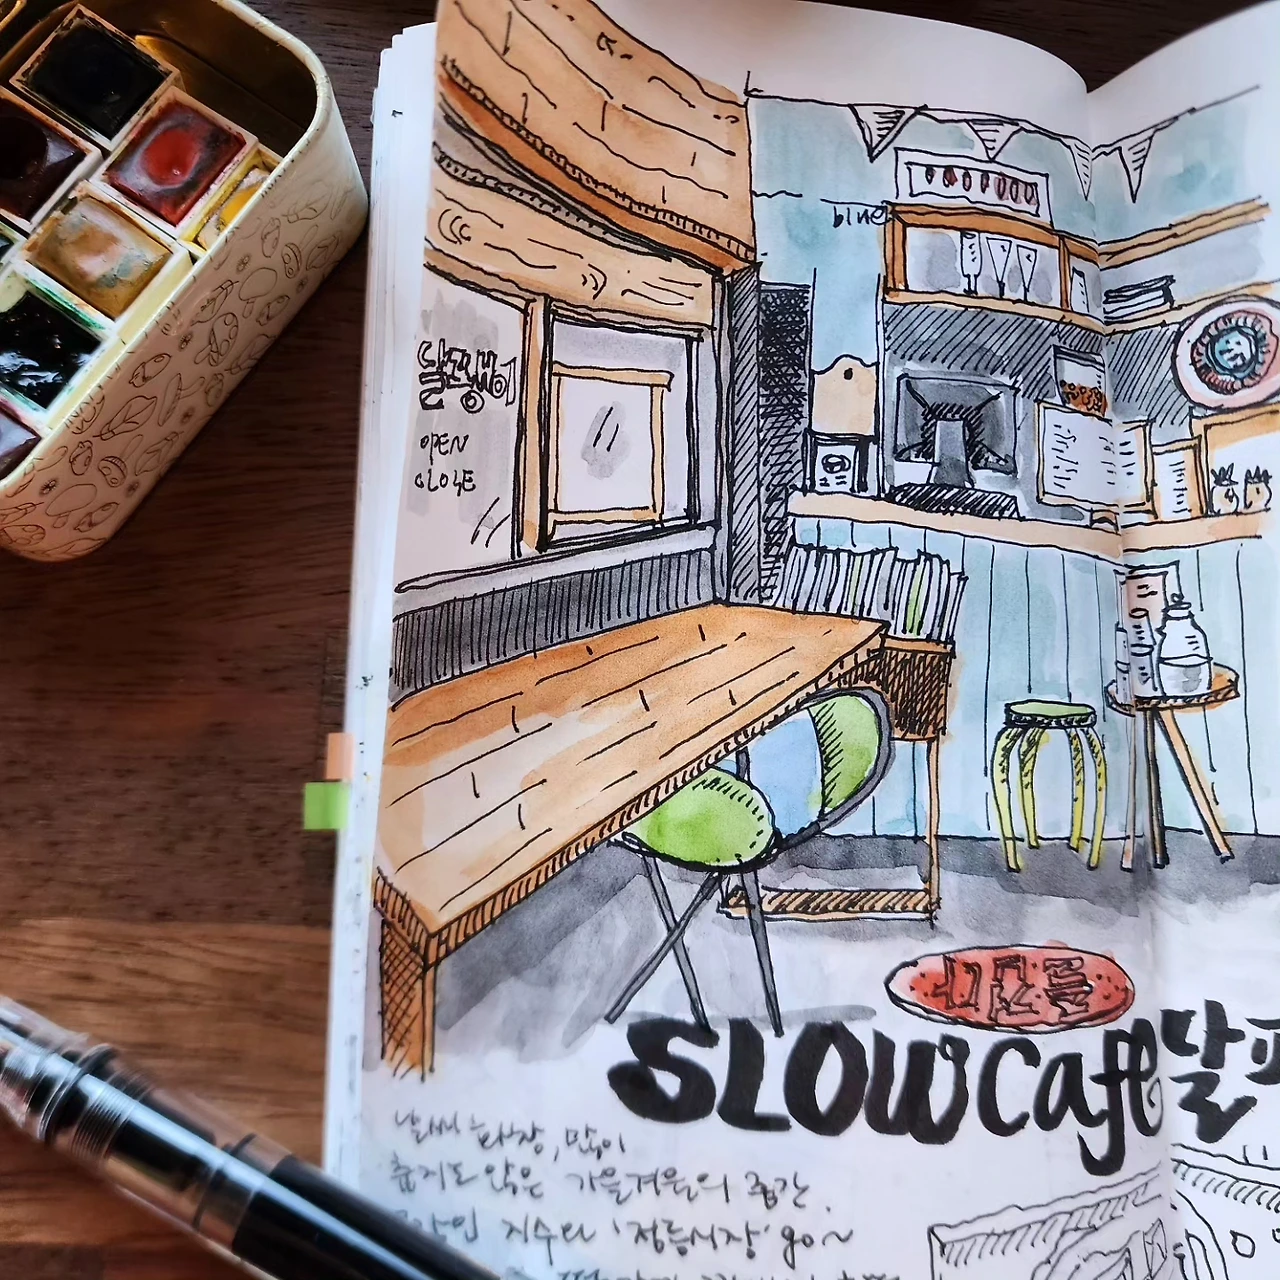 blue
달팽이
OPEN
CLOSE
그믄들
SLOW Cafe 달팽
날씨 화창, 많이
춥지도 않은 가을겨울의 중간.
지수랑 '정릉시장' go~